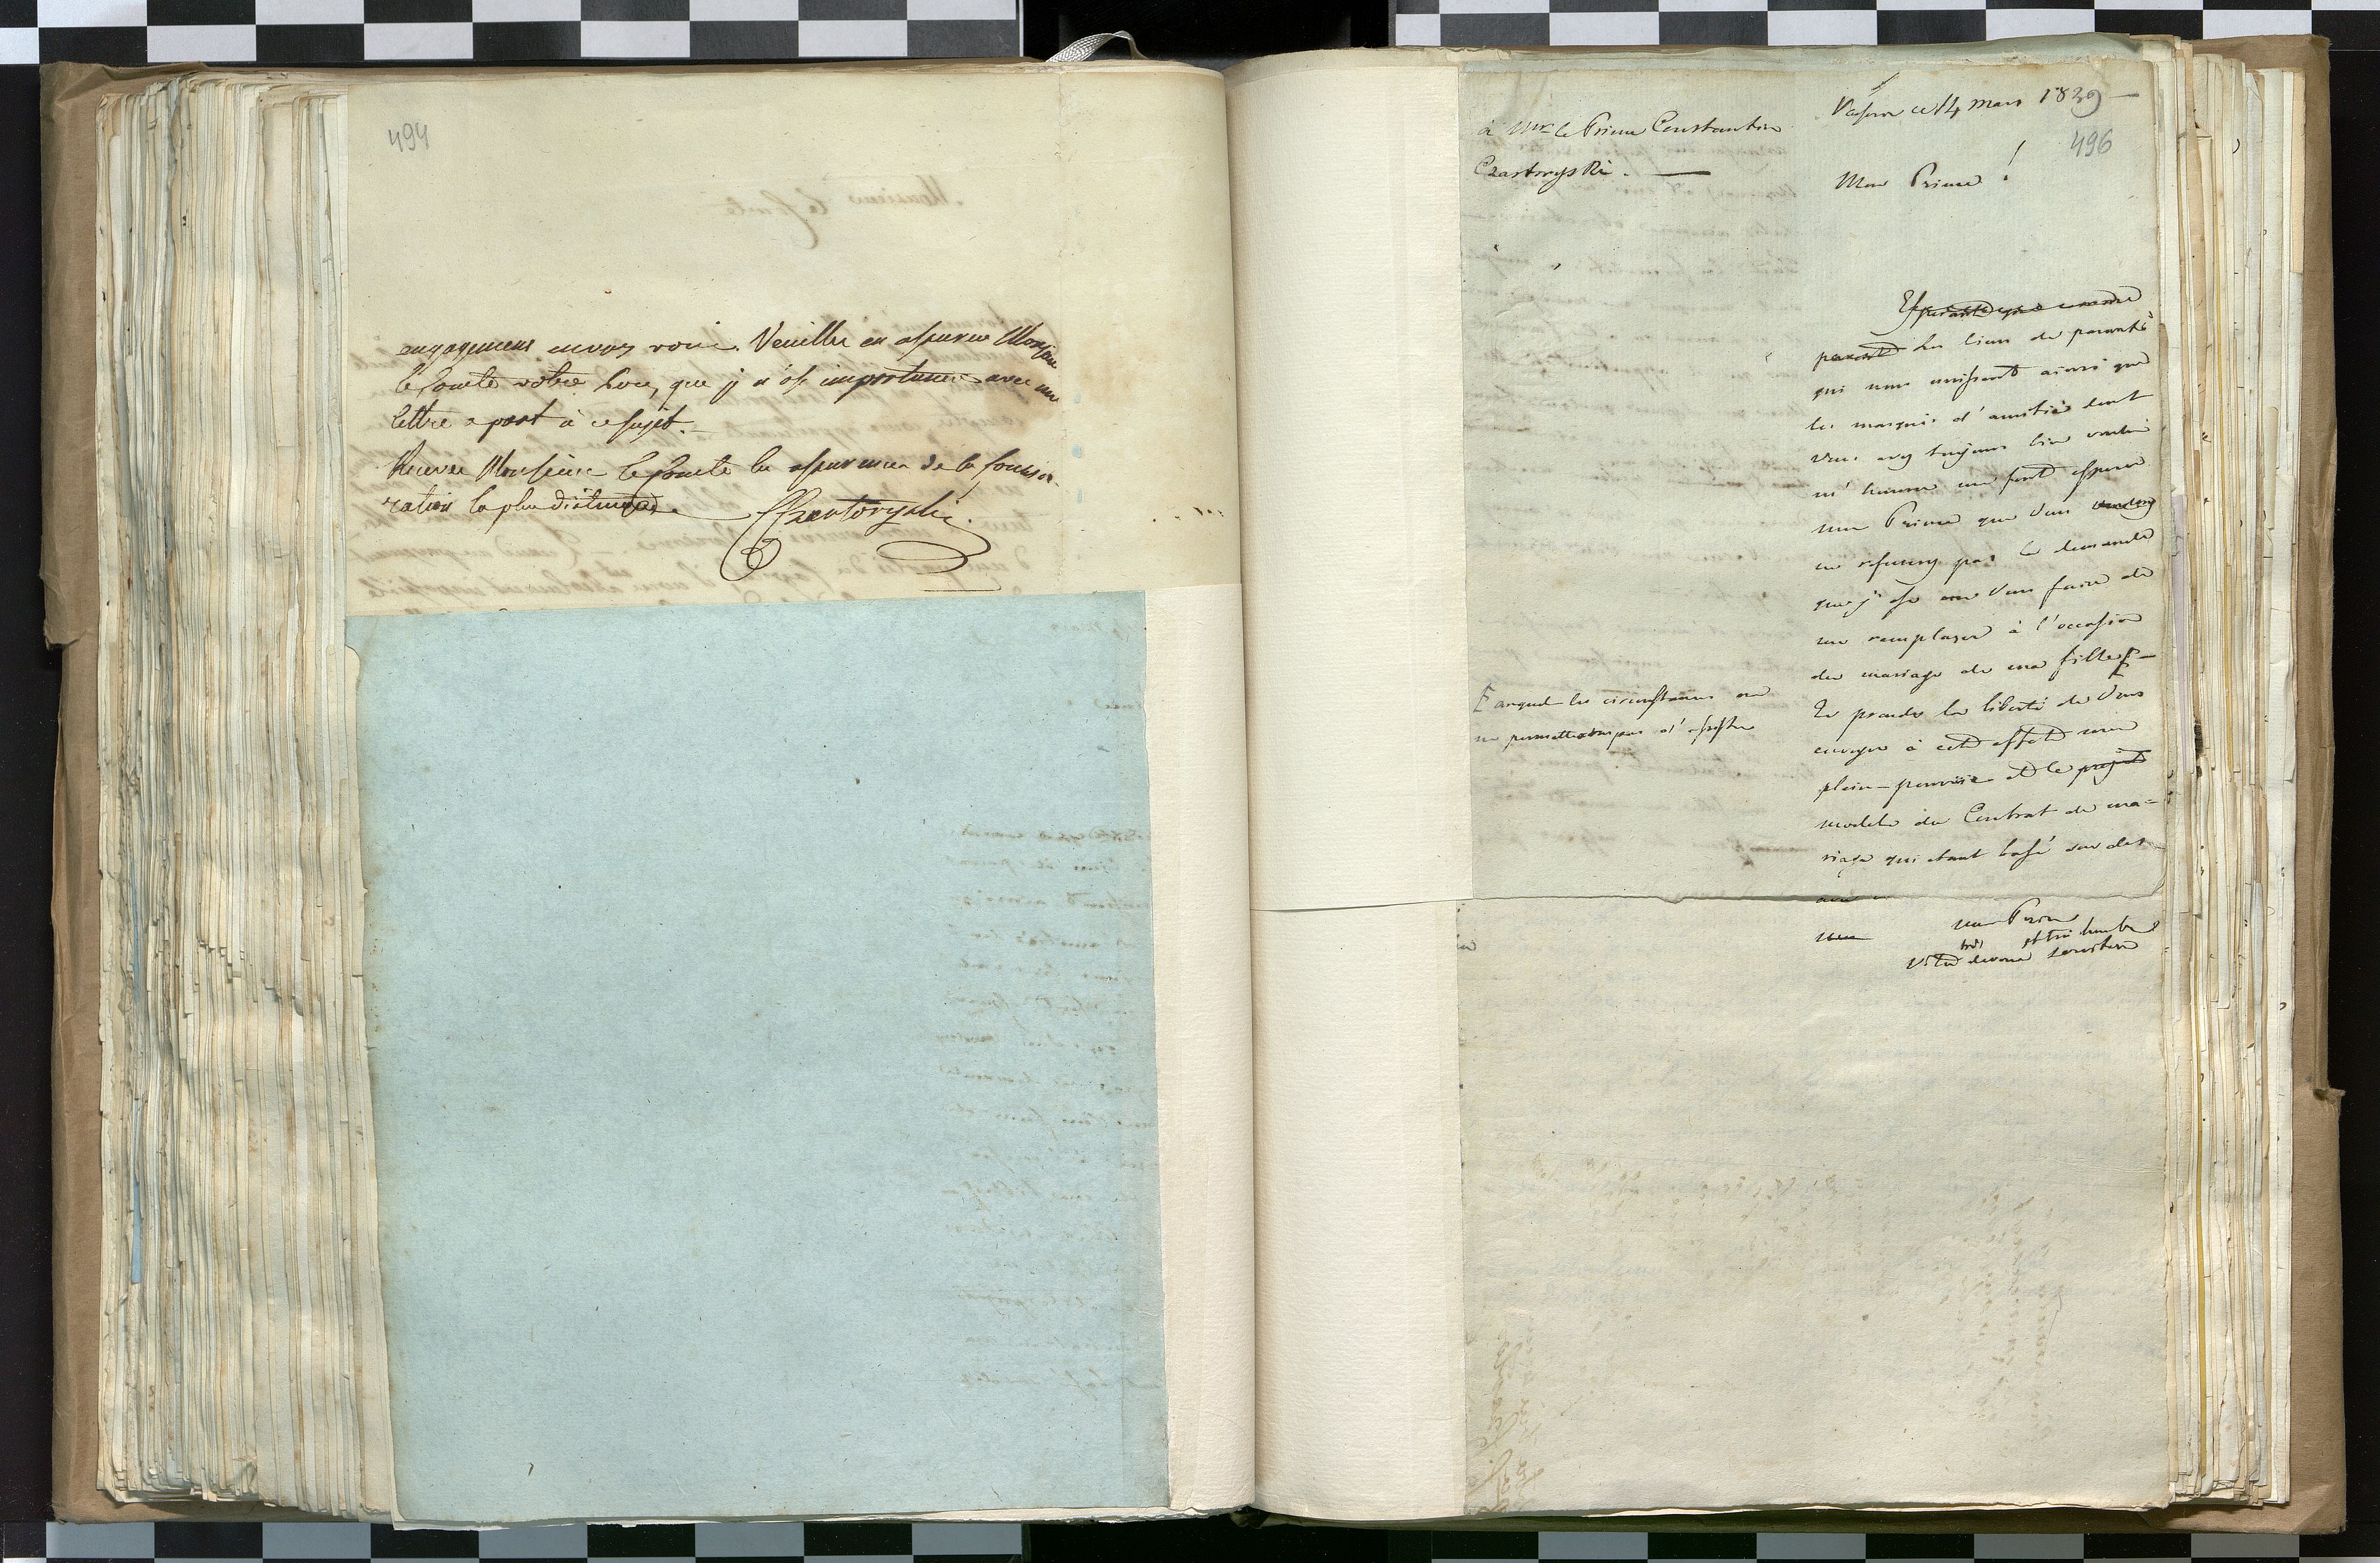 494
engagemens envers vous. Veuillez en assurer Monsieur
le Comte votre frere, que je n'ose importuner avec une
lettre a part à ce sujet.
Recevez Monsieur le Comte les assurances de la conside-
ration la plus distinguée CCzartoryski
à Mr le Prince Constantin
Czartoryski.
ce 14 mars 1839
496
Mon Prince!
Esperant que comme
parent Les liens de parenté
qui nous unissent ainsi que
les marques d'amitié dont
Vous avez toujours bien voulu
m'honorer me font esperer
mon Prince que Vous
ne refuserez pas la demande
que j'ose Vous faire de
me remplacer à l'occasion
du mariage de ma fille
auquel les circonstances
ne permettent pas d'assister
Je prends la liberté de Vous
envoyer à cet effet mon
plein-pouvoir et le projet
modele du Contrat de ma-
riage qui étant basé sur des
mon Prince
très et très humble
Votre devoué serviteur